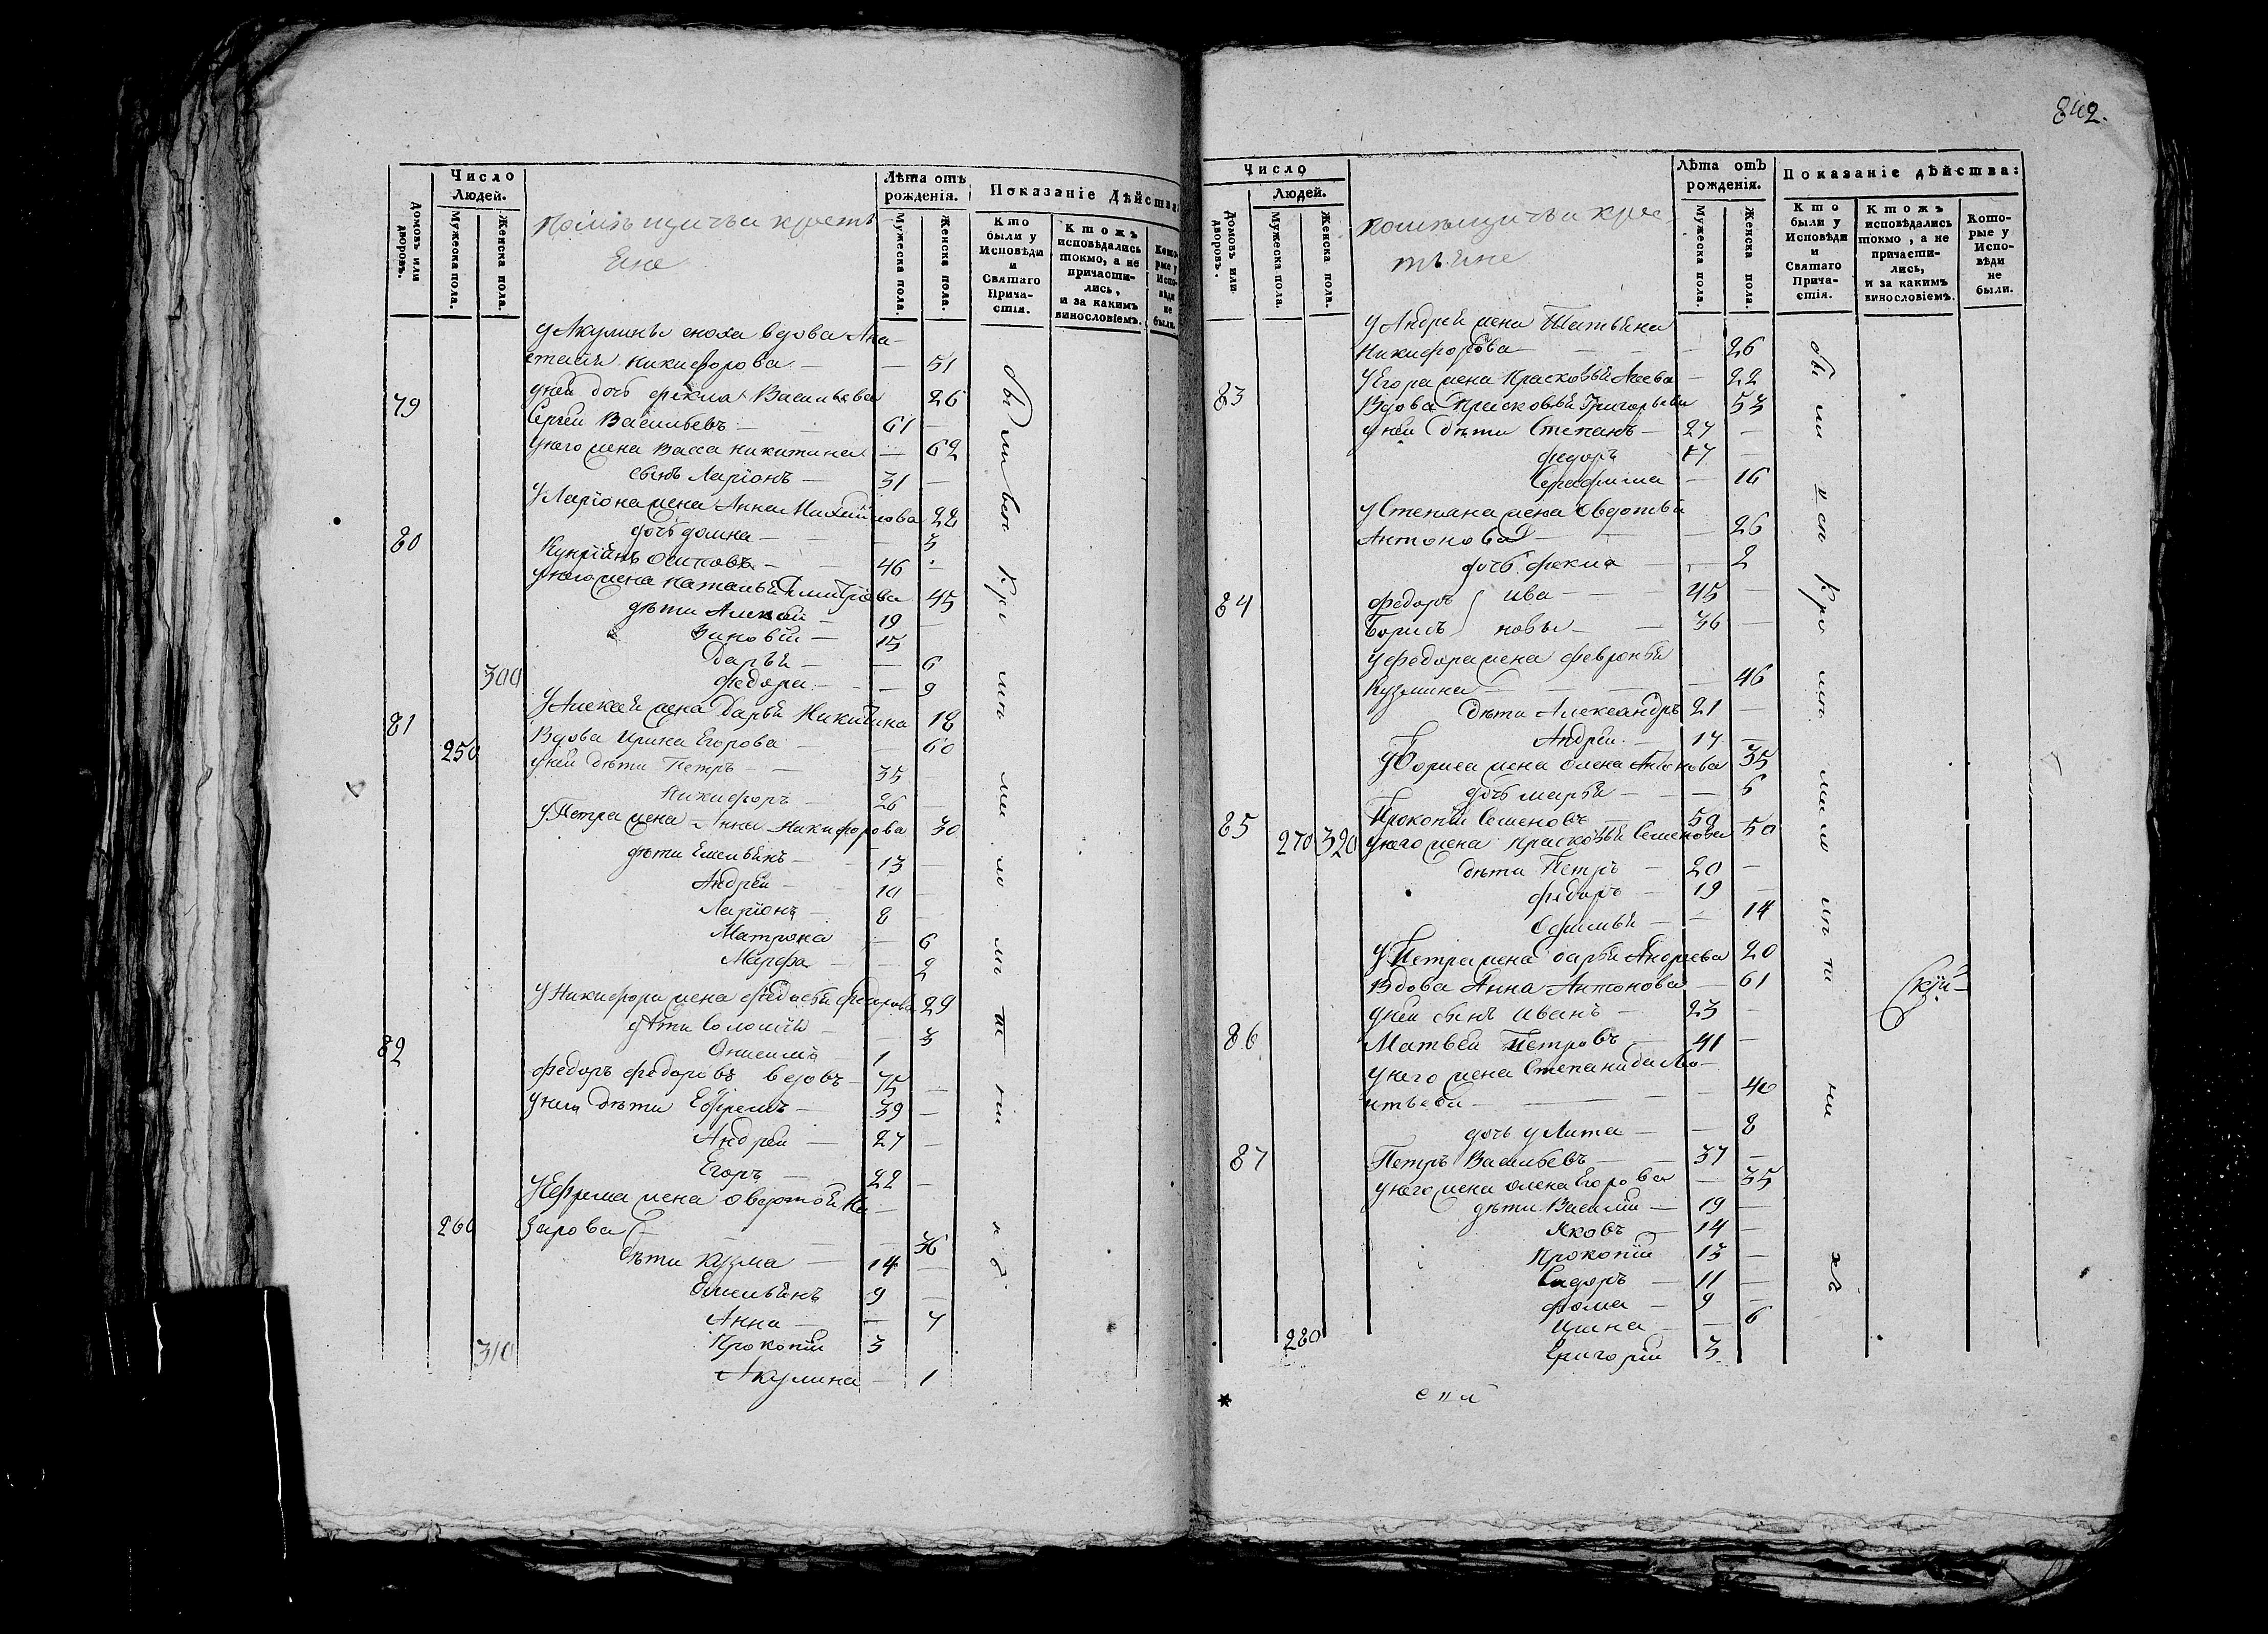 842.
Число
Людей.
Домовъ или дворовъ.
Мужеска пола.
Женска пола.
помѣщичьи крестьѣ
Яне
Лѣта отъ
рожденія.
Мужеска пола.
Женска пола.
Показаніе Дѣйства:
Кто
были у
Исповѣди
и
Святаго
Прича-
стія.
Ктожъ
исповѣдались
токмо, а не
причасти-
лись,
и за какимъ
винословіемъ.
Кото-
рые у
Испо-
вѣди
не
были.
У Акулины сноха вдова Ана-
стасія Никифорова — 51
у ней дочь Фекла Васильева 26
79 Сергѣй Васильевъ — 61 —
У него жена Васса Никитина — 62
сынъ Ларіонъ — 31 —
У Ларіона жена Анна Михайлова 22
дочь Домна — — 3
80 Купріянъ Осиповъ — 46 —
У него жена Наталья Дмитріева 45
дѣти Алексѣй — 19 —
Зиновій — 15
Дарья — — 6
300 Федора — — 9
У Алексѣя жена Дарья Никитина 18
81 Вдова Ирина Егорова — 60
250 у ней дѣти Петръ — 35
Никифоръ — 26 —
У Петра жена Анна Никифорова 30
дѣти Емельянъ — 13 —
Андрей — 10 —
Ларіонъ — 8 —
Матрона — 6
Марфа — — 2
У Никифора жена Федосья Федорова 29
дѣти Соломія — — 3
Онисимъ 1
82 Федоръ Федоровъ вдовъ — 75 —
у него дѣти Ефремъ — 39 —
Андрей — 27 —
Егоръ — 22 —
У Ефрема жена Овдотья На-
260 зарова — — 36
дѣти Кузма — 14 —
Емельянъ 9 —
Анна — — 7
310 Прокопій 3
Акулина — 1
Число
Людей.
Домовъ или дворовъ.
Мужеска пола.
Женска пола.
помѣщичьи крес-
тьяне
Лѣта отъ
рожденія.
Мужеска пола.
Женска пола.
Показаніе дѣйства:
Кто
были у
Исповѣди
и
Святаго
Прича-
стія.
Ктожъ
исповѣдались
токмо, а не
причасти-
лись,
и за какимъ
винословіемъ.
Кото-
рые у
Испо-
вѣди
не
были.
У Андрея жена Татьяна
Никифорова — — — 26
У Егора жена Прасковья — 22
83 Вдова Прасковья Григорьева 53
у ней дѣти Степанъ — 27 —
Федоръ 17 —
Серафима — 16
У Степана жена Овдотья
Антонова — — 26
дочь Фекла — — 2
84 Федоръ } Ива — — 45 —
Борисъ } новы — — 36 —
У Федора жена Февронья
Кузмина — — — 46
дѣти Александръ 21 —
Андрей — 17 —
У Бориса жена Олена Антонова 35
дочь Марья — — 6
85 Прокопій Семеновъ — 59 —
270 320 У него жена Прасковья Семенова 50
дѣти Петръ — 20 —
Федоръ — 19 —
Офимья — — 14
У Петра жена Дарья Андреева 20
Вдова Анна Антонова — 61
у ней сынъ Иванъ — 23 —
86 Матвей Петровъ — 41 —
У него жена Степанида Ле-
нтьева — — — 40
дочь Улита — — 8
87 Петръ Васильевъ — 37 —
у него жена Олена Егорова — 35
дѣти Василій — 19 —
Яковъ — 14 —
Прокопій 13 —
Сидоръ — 11 —
Фома — 9 —
Ирина — — 6
280 Григорій 3